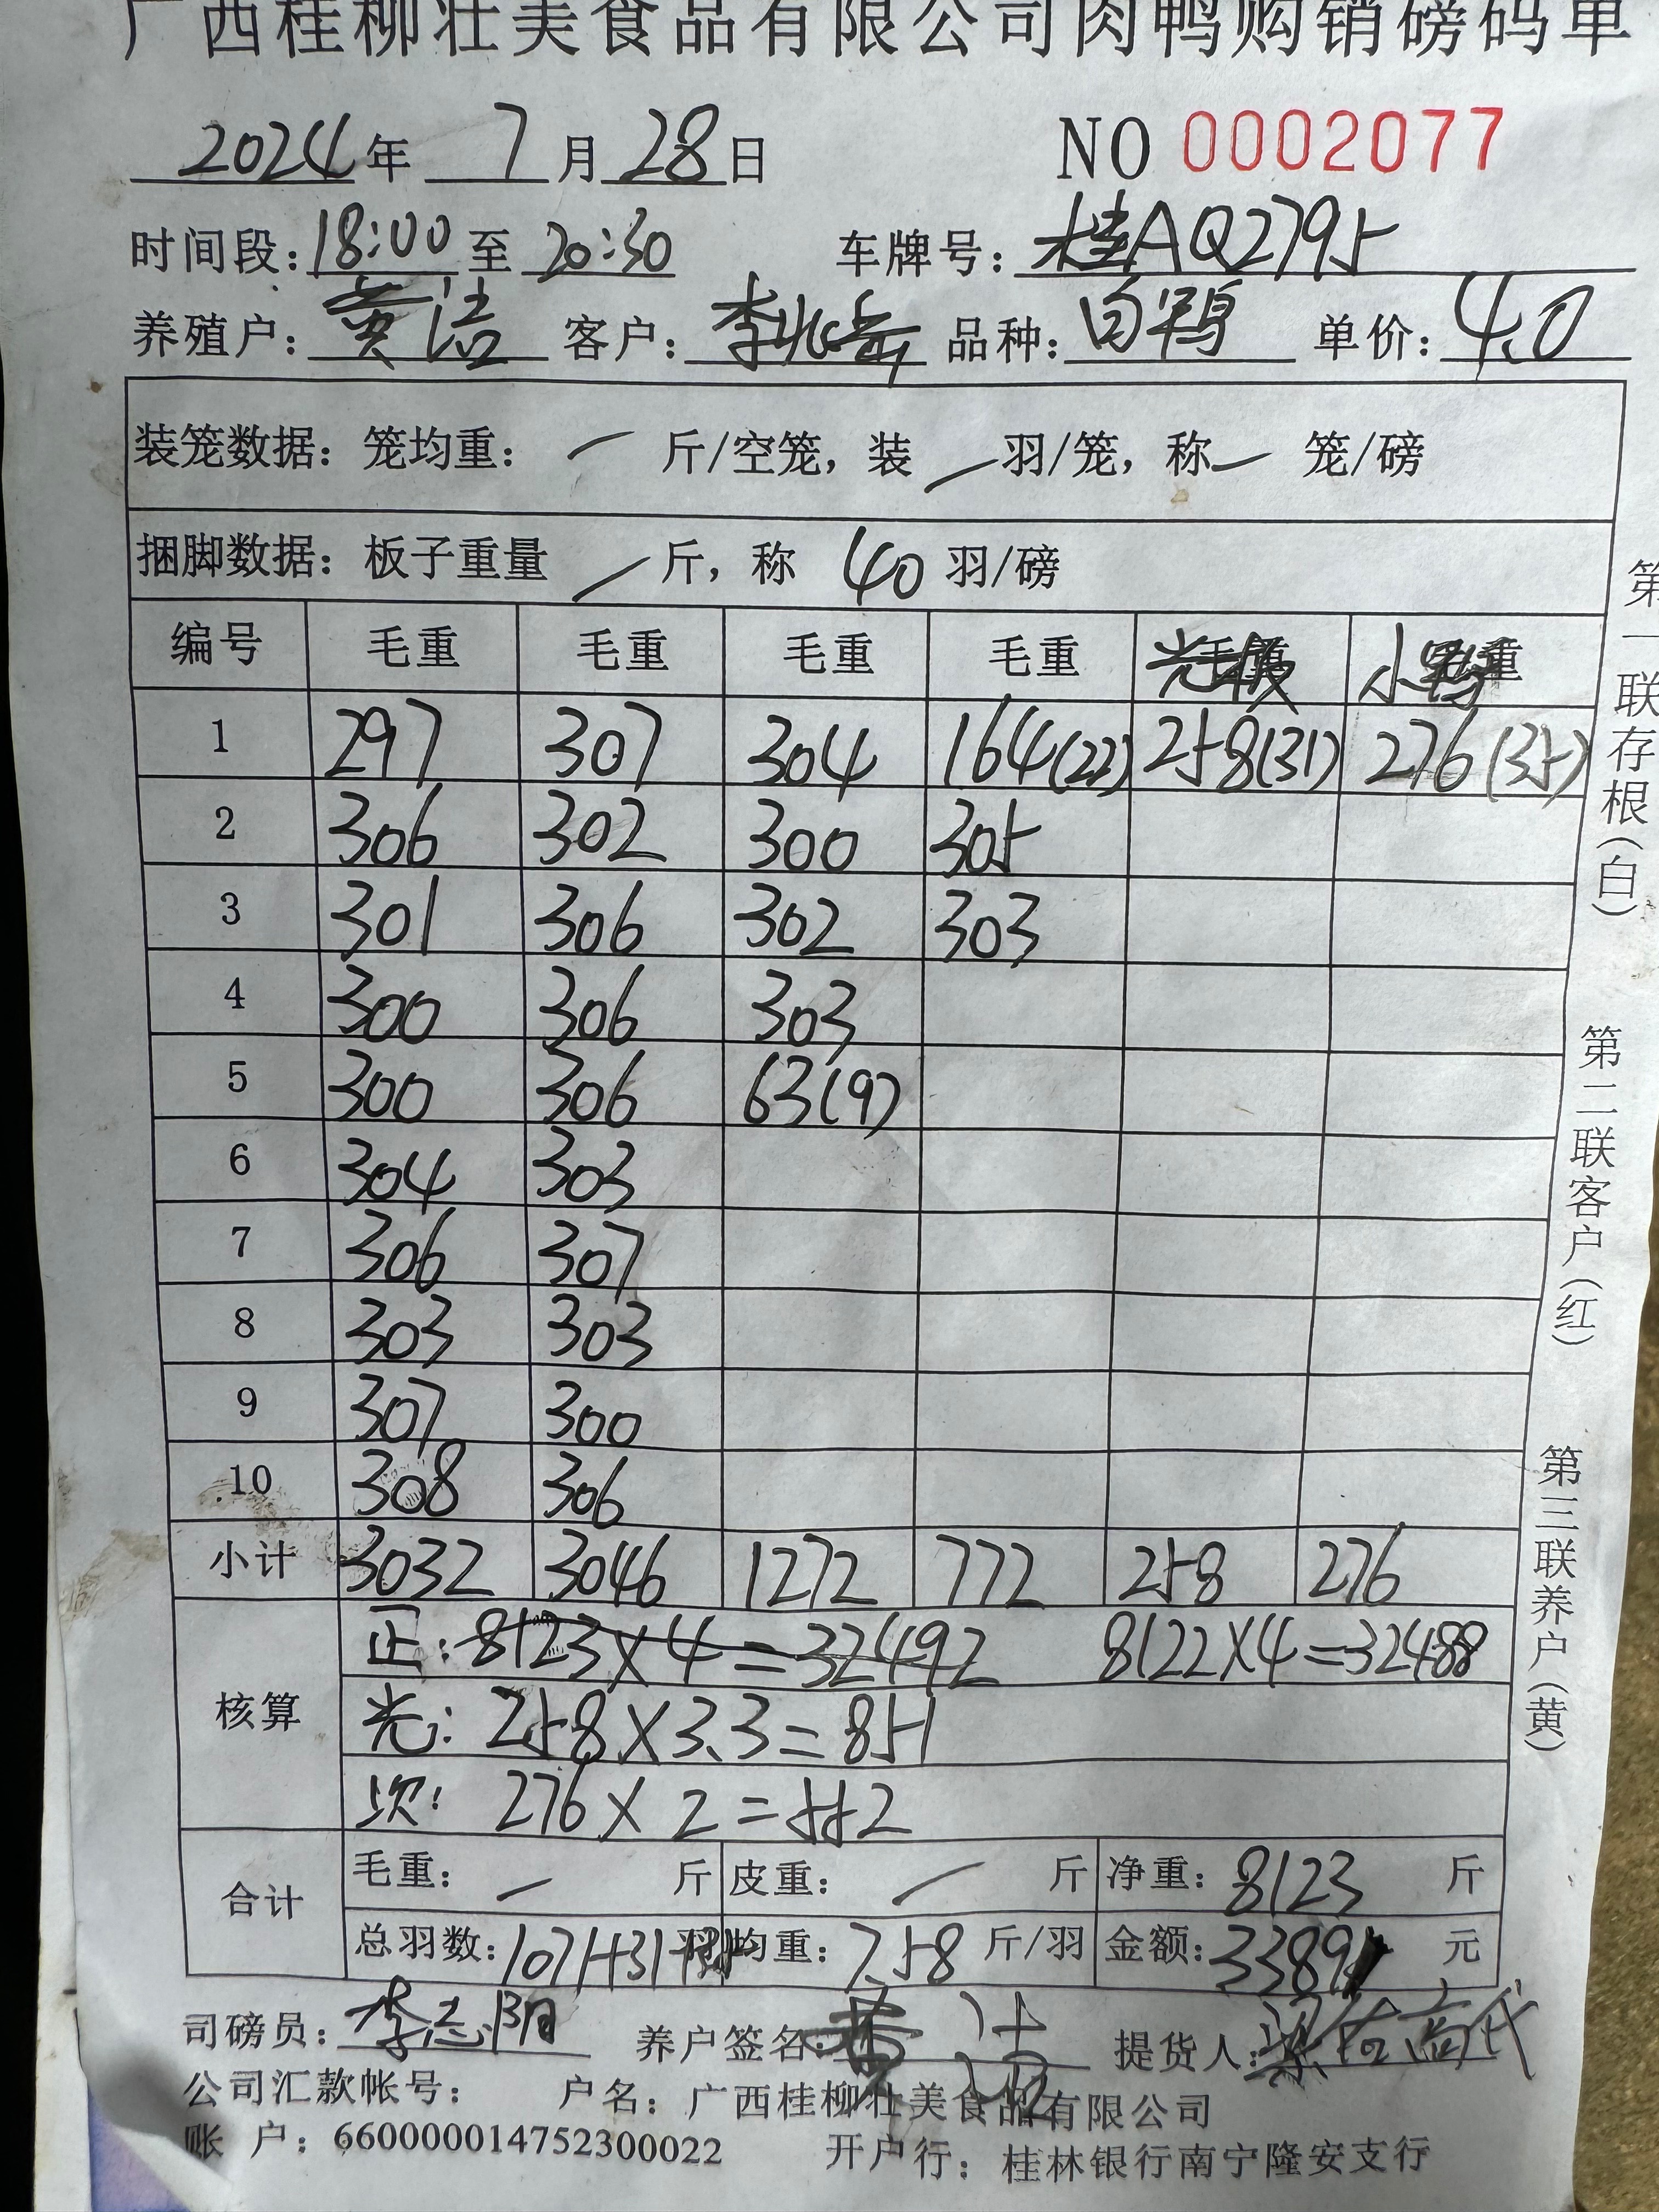 广西桂柳壮美食品有限公司肉鸭购销磅码单
2024年 7月28日 NO 0002077
时间段：18:00 至 20:30 车牌号：桂AQ2795
养殖户：黄洁 客户：李兆岳 品种：白鸭 单价：4.0
装笼数据：笼均重： — 斤/空笼，装 — 羽/笼，称 — 笼/磅
捆脚数据：板子重量 — 斤，称 40 羽/磅
编号 毛重 毛重 毛重 毛重 光板 小鸭
1 297 307 304 164(22) 258(31) 276(35)
2 306 302 300 305
3 301 306 302 303
4 300 306 303
5 300 306 63(9)
6 304 303
7 306 307
8 303 303
9 307 300
10 308 306
小计 3032 3046 1272 772 258 276
核算
正：8123×4=32492 8122×4=32488
光：258×3.3=851
次：276×2=552
合计
毛重： — 斤 皮重： — 斤 净重：8123 斤
总羽数：1071+31+35羽 均重：7.58 斤/羽 金额：33891 元
司磅员：李志阳 养户签名：黄洁 提货人：
公司汇款帐号： 户名：广西桂柳壮美食品有限公司
账 户：660000014752300022 开户行：桂林银行南宁隆安支行
第一联存根（白）
第二联客户（红）
第三联养户（黄）